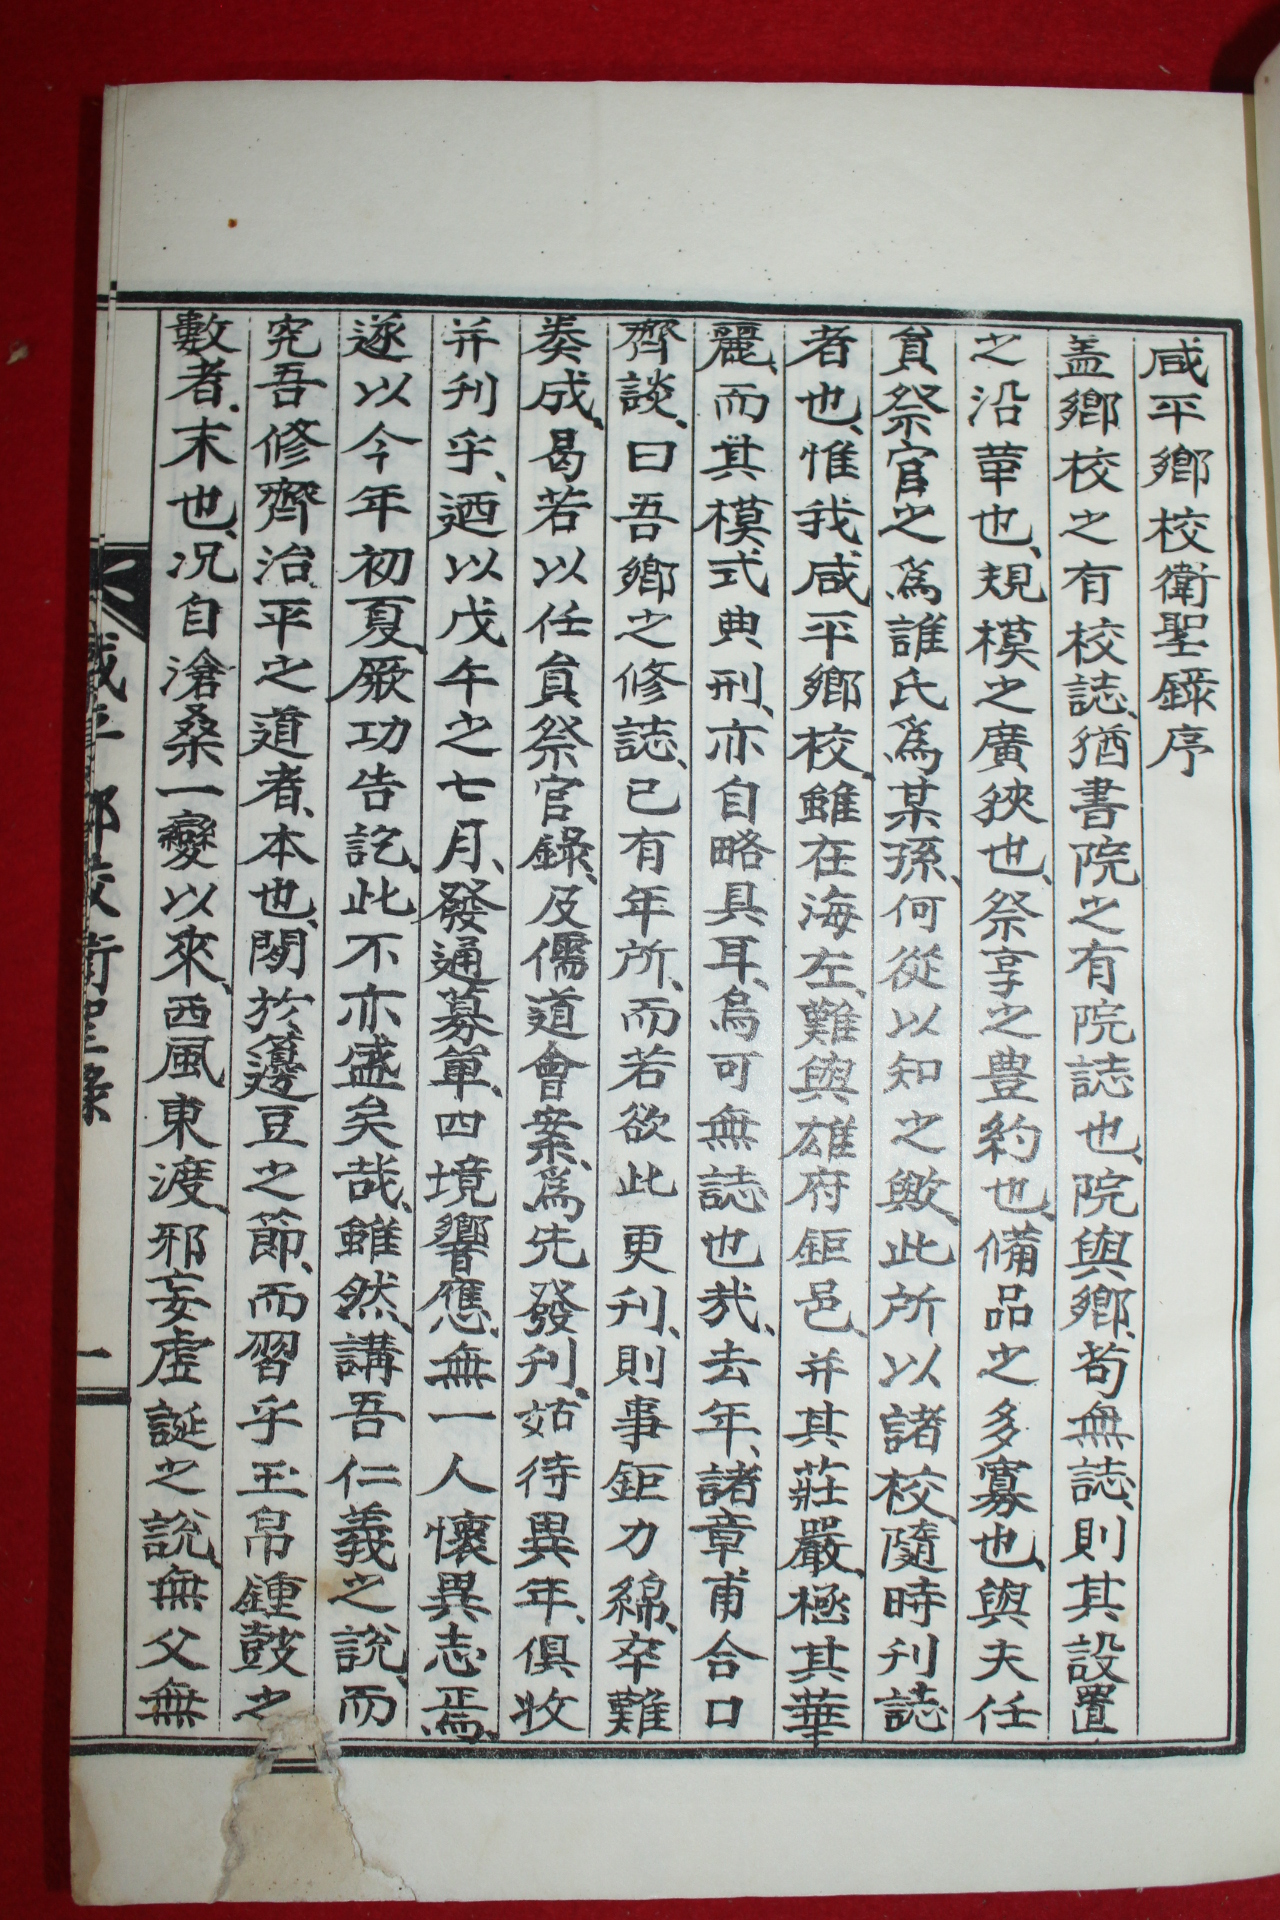 咸平鄕校衛聖錄序
盖鄕校之有校誌、猶書院之有院誌也、院與鄕、苟無誌、則其設置
之沿革也、規模之廣狹也、祭享之豊約也、備品之多寡也、與夫任
員祭官之爲誰氏爲某孫、何從以知之歟、此所以諸校隨時刊誌
者也、惟我咸平鄕校、雖在海左、難與雄府鉅邑、并其莊嚴、極其華
麗、而其模式典刑、亦自略具耳、烏可無誌也㦲、去年、諸章甫合口
齊談、曰吾鄕之修誌、已有年所、而若欲此更刊、則事鉅力綿、卒難
奏成、曷若以任員祭官錄、及儒道會案、爲先發刊、姑待異年、俱收
并刊乎、迺以戊午之七月、發通募單、四境響應、無一人懷異志焉、
遂以今年初夏、厥功告訖、此不亦盛矣哉、雖然、講吾仁義之說、而
究吾修齊治平之道者、本也、閒於籩豆之節、而習乎玉帛鍾鼓之
數者、末也、况自滄桑一變以來、西風東渡、邪妄虛誕之說、無父無
咸平鄕校衛聖錄
一